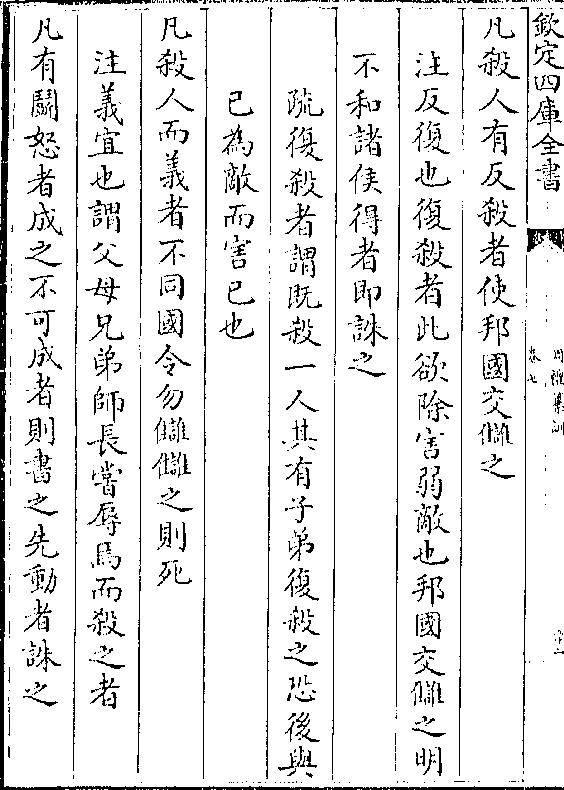 欽定四庫全書
周禮集訓
卷七
凡殺人有反殺者使邦國交讎之
注反復也復殺者此欲除害弱敵也邦國交讎之明
不和諸侯得者即誅之
疏復殺者謂既殺一人其有子弟復殺之恐後與
已為敵而害已也
凡殺人而義者不同國令勿讎讎之則死
注義宜也謂父母兄弟師長嘗辱焉而殺之者
凡有鬭怒者成之不可成者則書之先動者誅之